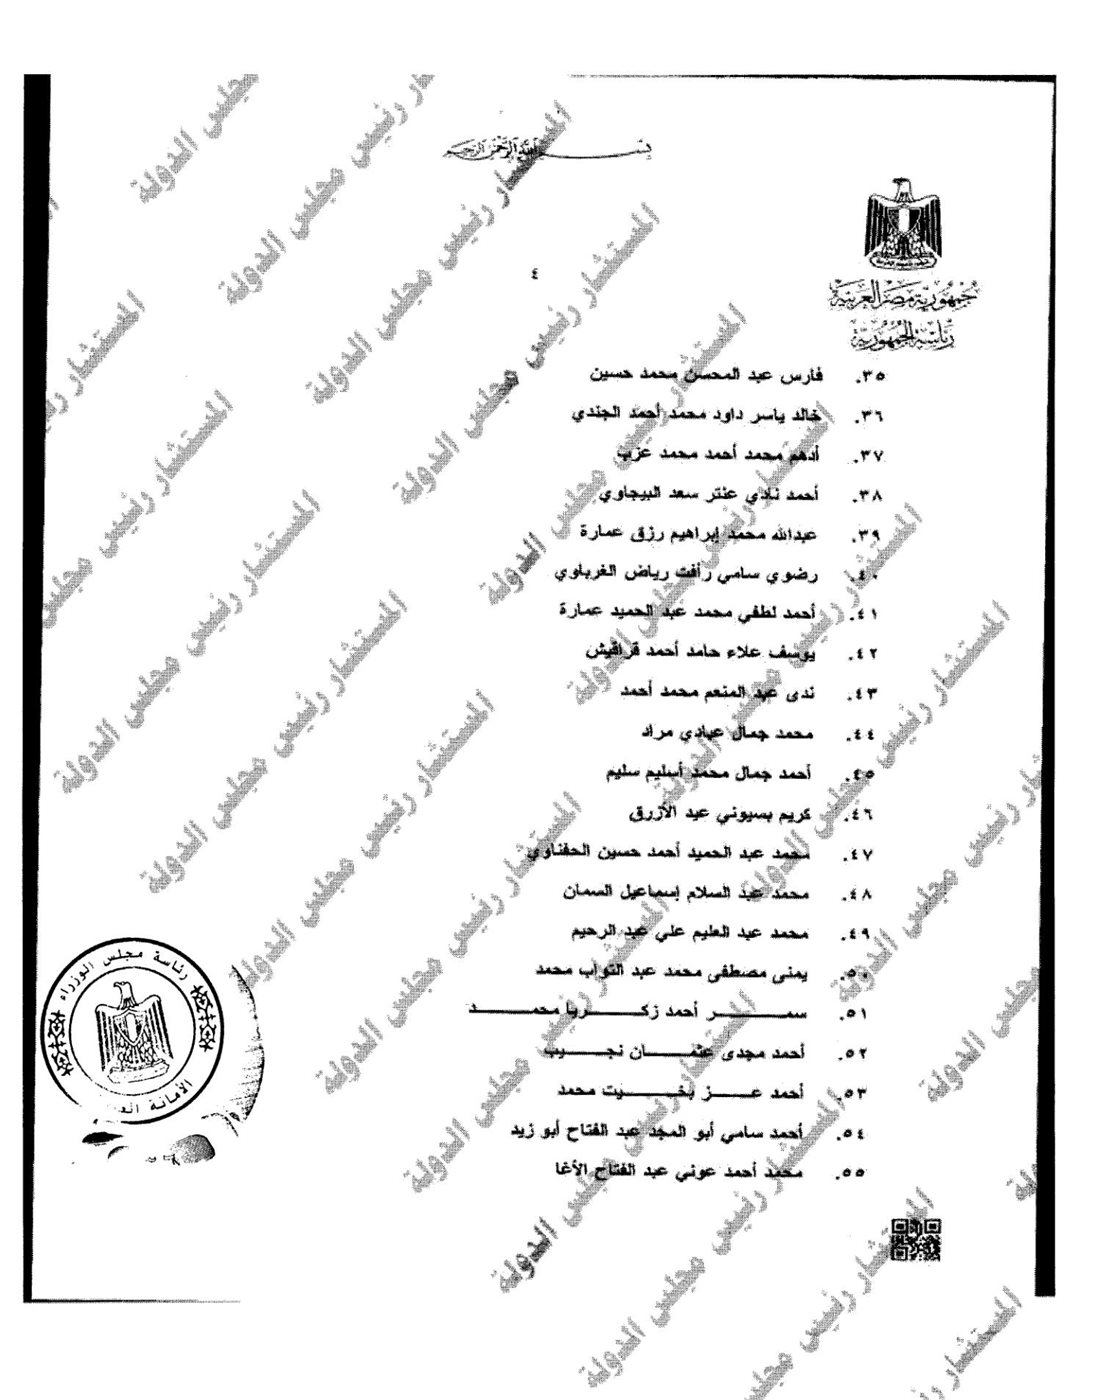 بسم الله الرحمن الرحيم
جمهورية مصر العربية
رئاسة الجمهورية
٤
٣٥. فارس عبد المحسن محمد حسين
٣٦. خالد ياسر داود محمد أحمد الجندي
٣٧. أدهم محمد أحمد محمد عزب
٣٨. أحمد نادي عنتر سعد البيجاوي
٣٩. عبدالله محمد إبراهيم رزق عمارة
٤٠. رضوي سامي رأفت رياض الغرباوي
٤١. أحمد لطفي محمد عبد الحميد عمارة
٤٢. يوسف علاء حامد أحمد قراقيش
٤٣. ندى عبد المنعم محمد أحمد
٤٤. محمد جمال عبادي مراد
٤٥. أحمد جمال محمد أسليم سليم
٤٦. كريم بسيوني عيد الأزرق
٤٧. محمد عبد الحميد أحمد حسين الحفناوي
٤٨. محمد عبد السلام إسماعيل السمان
٤٩. محمد عبد العليم علي عبد الرحيم
٥٠. يمنى مصطفى محمد عبد التواب محمد
٥١. سمر أحمد زكريا محمد
٥٢. أحمد مجدى عثمان نجيب
٥٣. أحمد عز بخيت محمد
٥٤. أحمد سامي أبو المجد عبد الفتاح أبو زيد
٥٥. محمد أحمد عوني عبد الفتاح الأغا
رئاسة مجلس الوزراء
الأمانة
المستشار رئيس مجلس الدولة